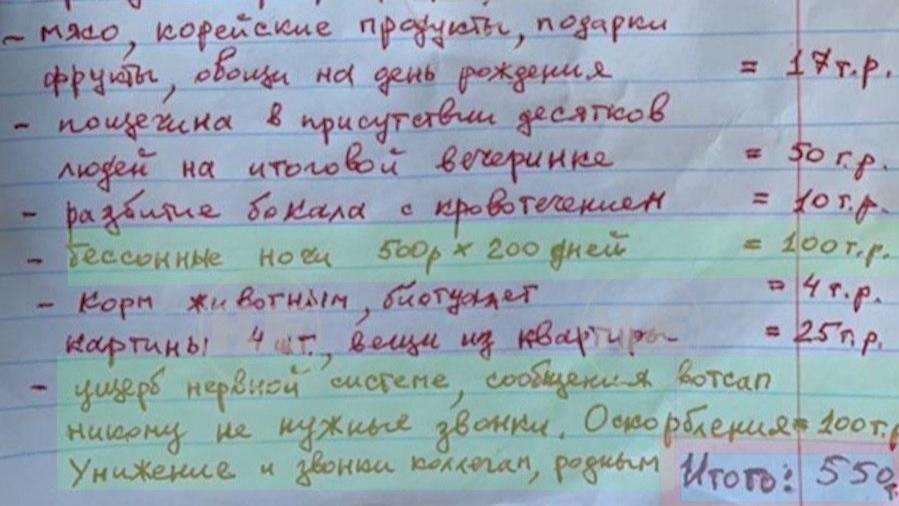 - мясо, корейские продукты, подарки
фрукты, овощи на день рождения = 17 т.р.
- пощечина в присутствии десятков
людей на итоговой вечеринке = 50 т.р.
- разбитие бокала с кровотечением = 10 т.р.
- бессонные ночи 500р × 200 дней = 100 т.р.
- корм животным, биотуалет = 4 т.р.
картины 4 шт., вещи из квартиры = 25 т.р.
- ущерб нервной системе, сообщения вотсап
никому не нужные звонки. Оскорбления = 100 т.р
Унижение и звонки коллегам, родным Итого: 550 т.